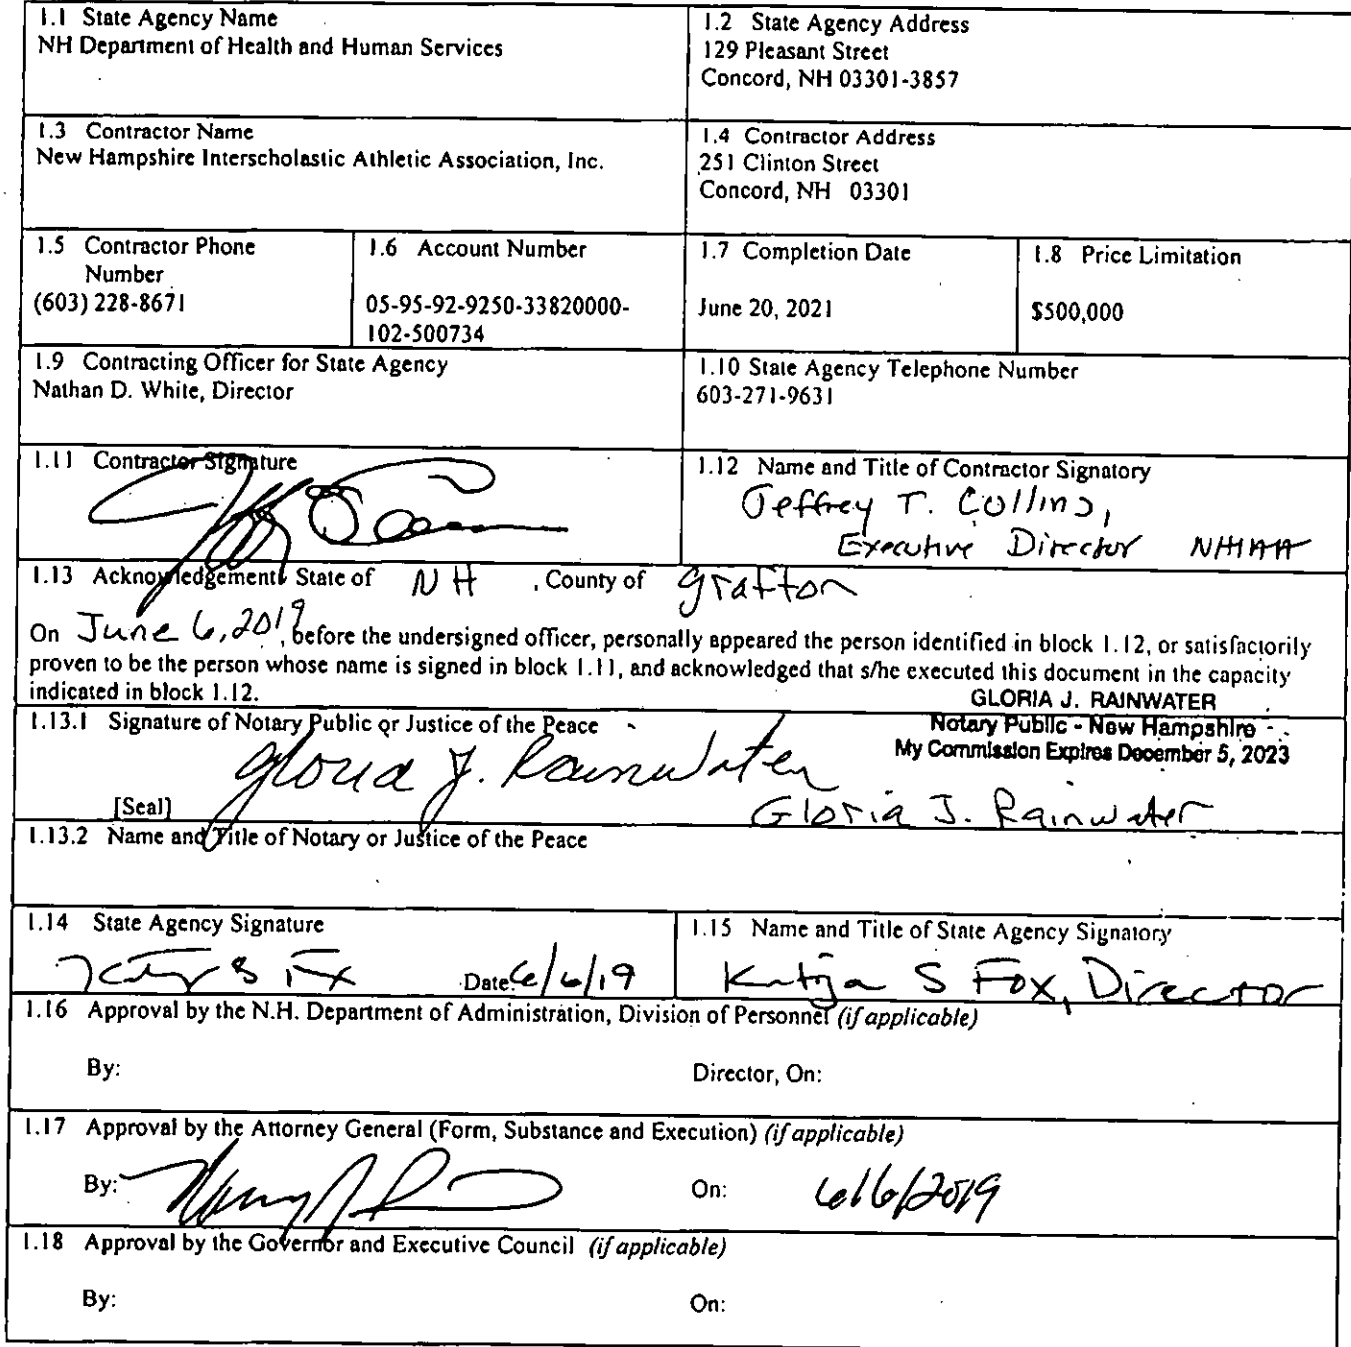 1.1 State Agency Name
NH Department of Health and Human Services
1.2 State Agency Address
129 Pleasant Street
Concord, NH 03301-3857
1.3 Contractor Name
New Hampshire Interscholastic Athletic Association, Inc.
1.4 Contractor Address
251 Clinton Street
Concord, NH 03301
1.5 Contractor Phone
Number
(603) 228-8671
1.6 Account Number
05-95-92-9250-33820000-
102-500734
1.7 Completion Date
June 20, 2021
1.8 Price Limitation
$500,000
1.9 Contracting Officer for State Agency
Nathan D. White, Director
1.10 State Agency Telephone Number
603-271-9631
1.11 Contractor Signature
1.12 Name and Title of Contractor Signatory
Jeffrey T. Collins,
Executive Director NHIAA
1.13 Acknowledgement: State of NH , County of Grafton
On June 6, 2019, before the undersigned officer, personally appeared the person identified in block 1.12, or satisfactorily
proven to be the person whose name is signed in block 1.11, and acknowledged that s/he executed this document in the capacity
indicated in block 1.12.
GLORIA J. RAINWATER
Notary Public - New Hampshire
My Commission Expires December 5, 2023
1.13.1 Signature of Notary Public or Justice of the Peace
Gloria J. Rainwater
[Seal]
Gloria J. Rainwater
1.13.2 Name and Title of Notary or Justice of the Peace
1.14 State Agency Signature
Date: 6/6/19
1.15 Name and Title of State Agency Signatory
Katja S Fox, Director
1.16 Approval by the N.H. Department of Administration, Division of Personnel (if applicable)
By:
Director, On:
1.17 Approval by the Attorney General (Form, Substance and Execution) (if applicable)
By:
On: 6/6/2019
1.18 Approval by the Governor and Executive Council (if applicable)
By:
On: